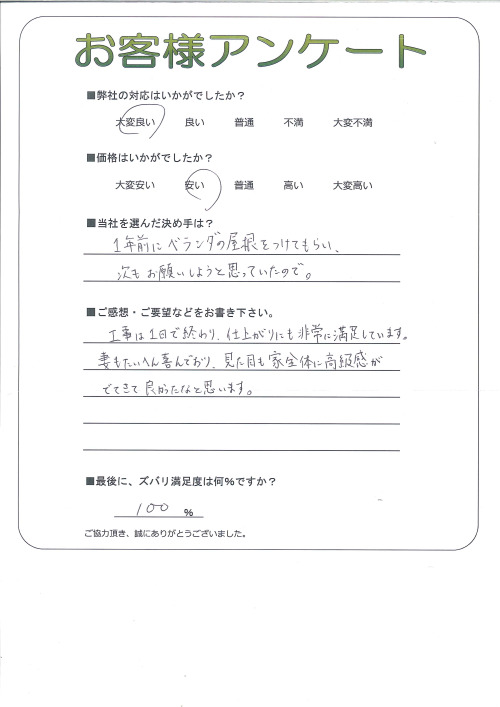 お客様アンケート
■弊社の対応はいかがでしたか？
大変良い 良い 普通 不満 大変不満
■価格はいかがでしたか？
大変安い 安い 普通 高い 大変高い
■当社を選んだ決め手は？
1年前にベランダの屋根をつけてもらい、
次もお願いしようと思っていたので。
■ご感想・ご要望などをお書き下さい。
工事は1日で終わり、仕上がりにも非常に満足しています。
妻もたいへん喜んでおり、見た目も家全体に高級感が
でてきて良かったなと思います。
■最後に、ズバリ満足度は何％ですか？
100 ％
ご協力頂き、誠にありがとうございました。